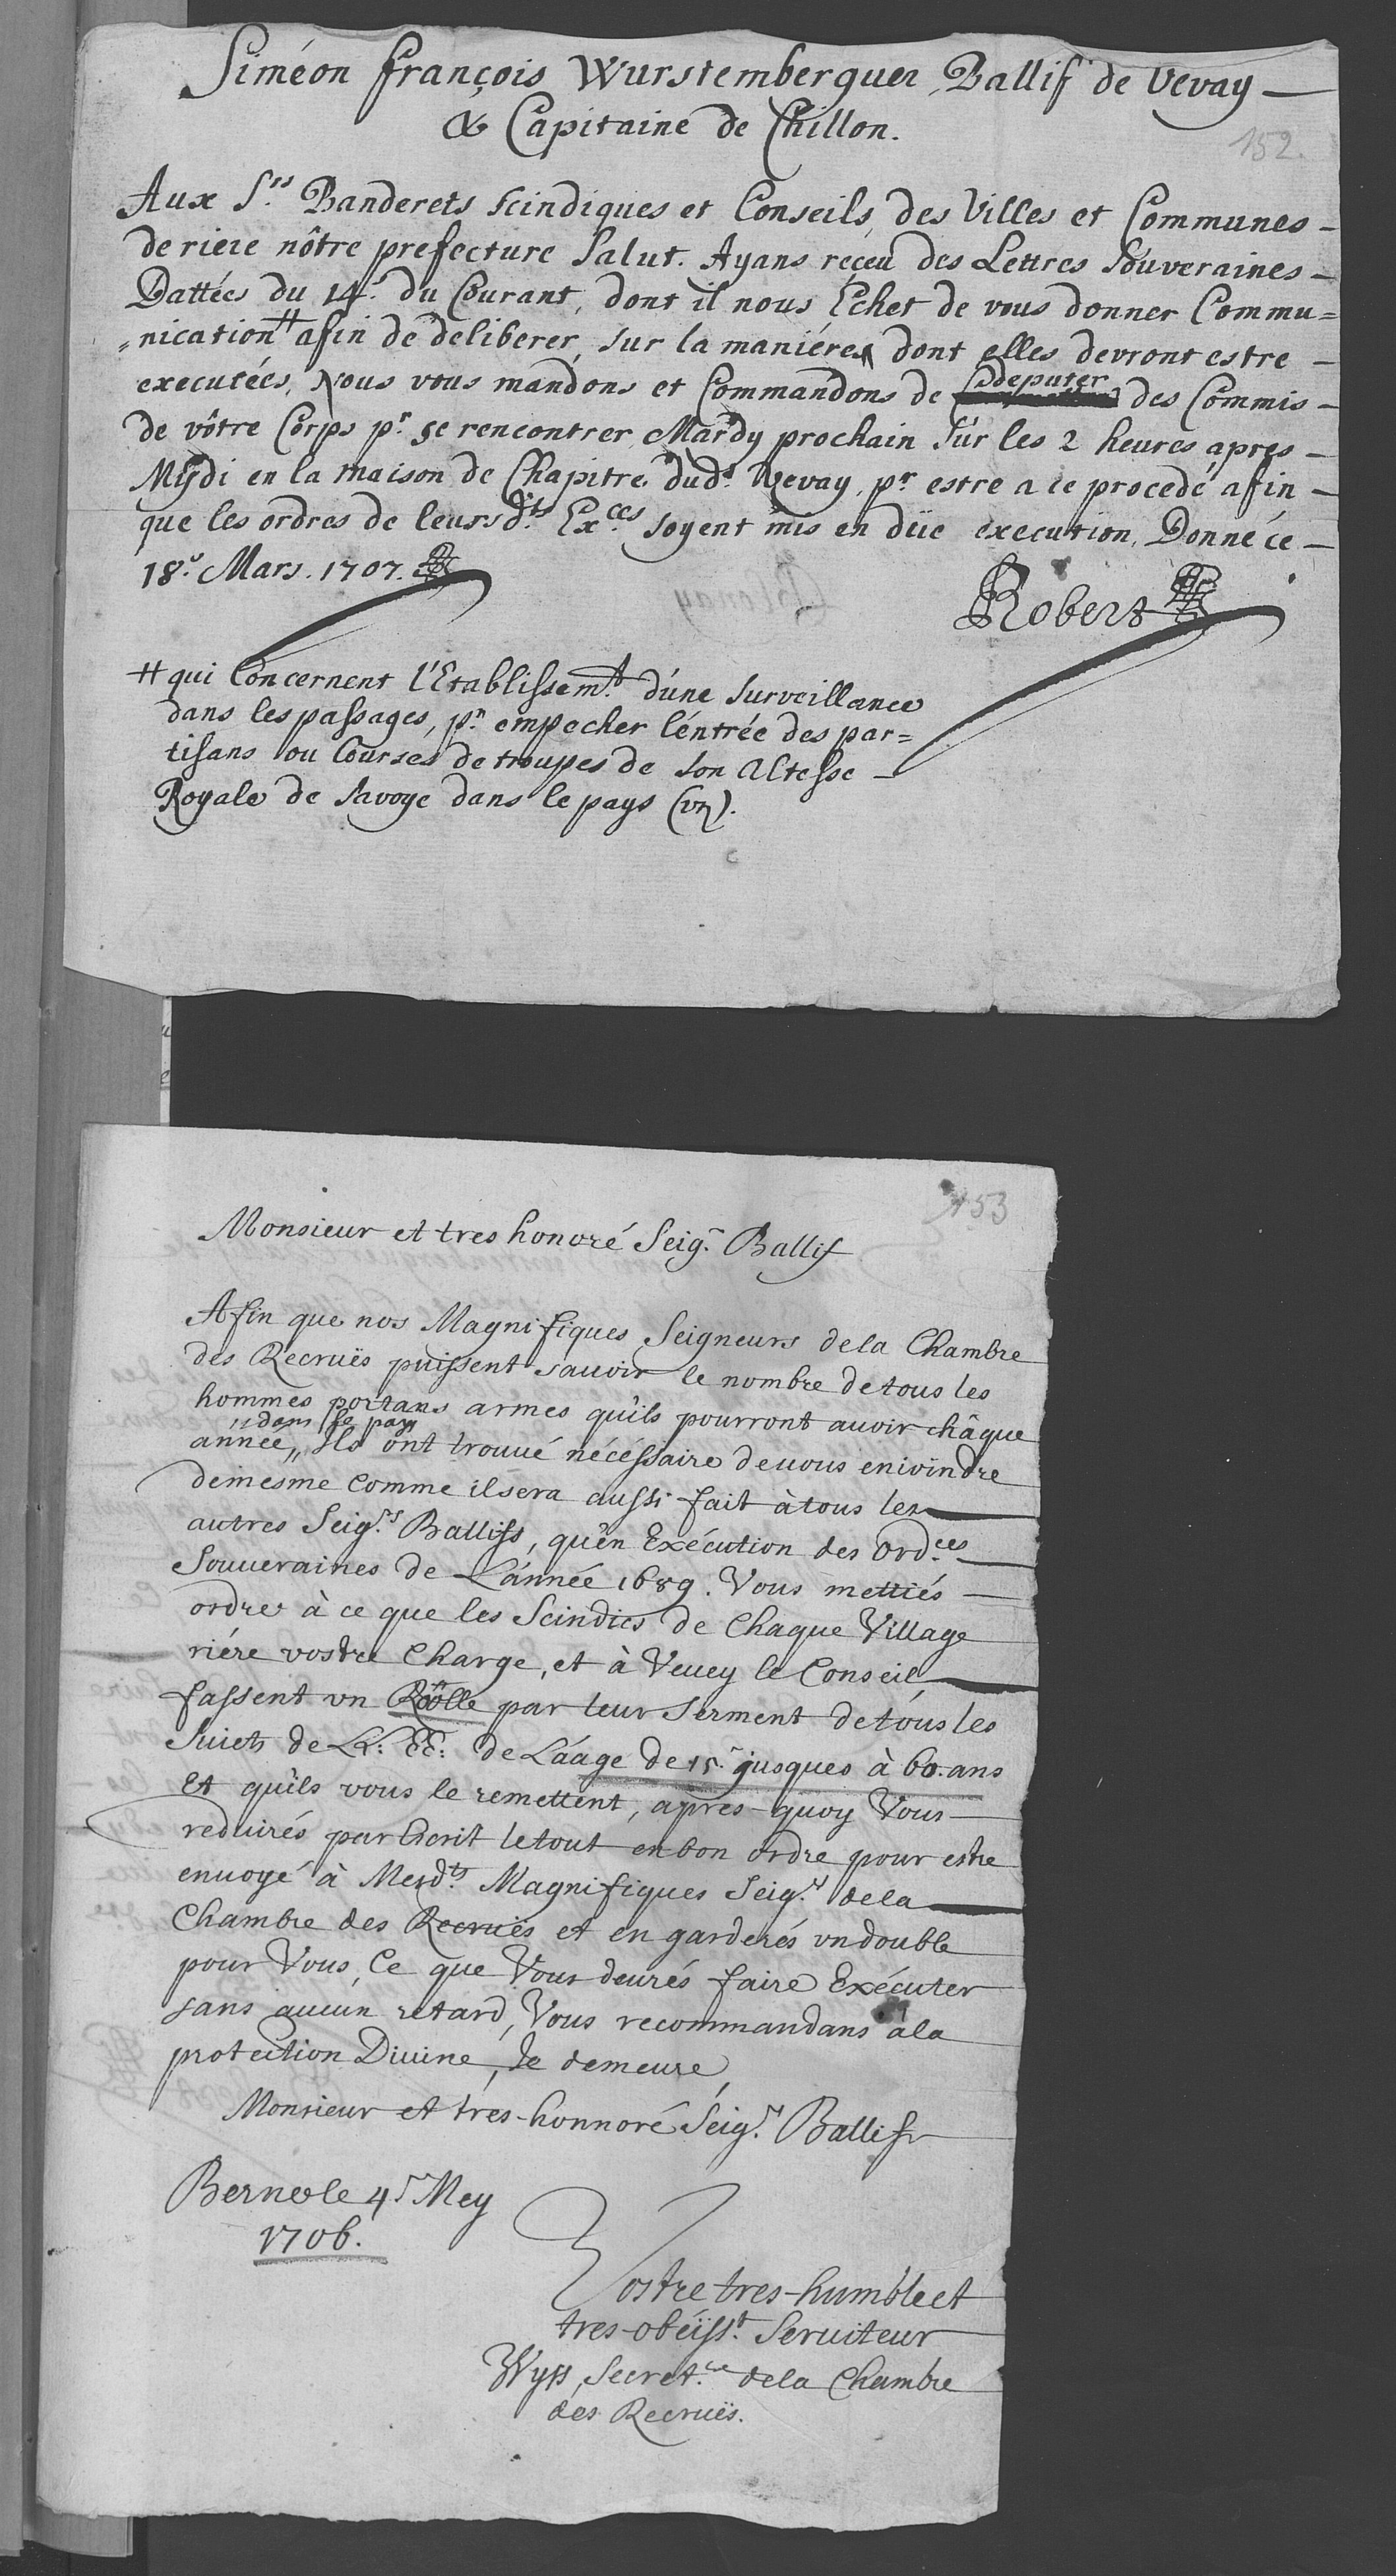 Siméon François Wurstemberguer, Ballif de Vevay
& Capitaine de Chillon.
152.
Aux S.rs Banderets scindiques et Conseils, des Villes et Communes
de riere nôtre prefecture Salut. Ayans reçeu des Lettres Souveraines
Dattées du 14.e du Courant, dont il nous Echet de vous donner Commu=
=nication # afin de deliberer, sur la maniére dont elles devront estre
executées, Nous vous mandons et Commandons de deputer des Commis
de vôtre Corps p.r se rencontrer Mardy prochain sur les 2 heures apres
Mydi en la maison de Chapitre dud.t Vevay, p.r estre a ce procedé afin
que les ordres de leursd.ts Ex.ces soyent mis en düe execution, Donné ce
18.e Mars. 1707.
Robert
# qui Concernent l'Etablissem.t d'une surveillance
dans les passages, p.r empecher l'entrée des par=
tisans ou Courses de troupes de son Altesse
Royale de Savoye dans le pays
153
Monsieur et tres honoré Seig.r Ballif
Afin que nos Magnifiques Seigneurs de la Chambre
des Recruës puissent sauoir le nombre de tous les
hommes portans armes qu'ils pourront auoir châque
"dans le pay
année," Ils ont trouué nécéssaire de uous enioindre
demesme comme il sera aussi fait à tous les
autres Seig.rs Ballifs, qu'en Exécution des Ord.ces
Souueraines de L'année 1689. Vous mettiés
ordre à ce que les Scindics de Chaque Village
riére vostre Charge, et à Veuey le Conseil,
fassent vn Röolle par leur serment de tous les
Suiets de LL: EE: de L'áage de 15. jusques à 60. ans
Et qu'ils vous le remettent, apres-quoy Vous
reduirés par Escrit le tout en bon ordre pour estre
enuoyé à Mesd.ts Magnifiques Seig.rs de la
Chambre des Recruës et en garderés vn double
pour Vous, Ce que Vous deurés faire Exécuter
sans aucun retard, Vous recommandans à la
protection Diuine, Je demeure,
Monsieur et tres-honnoré Seig.r Ballif
Berne le 4.e Mey
1706.
Vostre tres-humble et
tres-obéiss.t Seruiteur
Wyss, Secret.re de la Chambre
des Recruës.